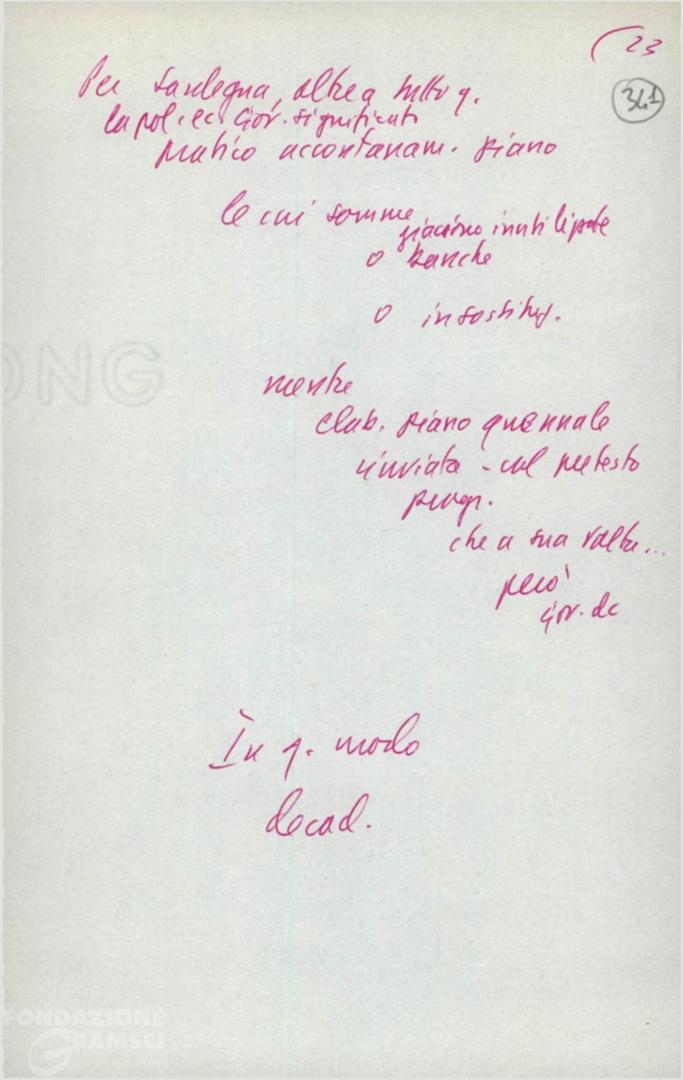 23
341
Per Sardegna, oltre a tutto q.
la pol. ec. Gov. significato
pratico accantonam. piano
le cui somme
giacciono inutilizzate
o banche
o in sostit.
mentre
elab. piano quennale
rinviata - col pretesto
progr.
che a sua volta...
però
Gov. dc
In q. modo
decad.
ONG
FONDAZIONE
GRAMSCI